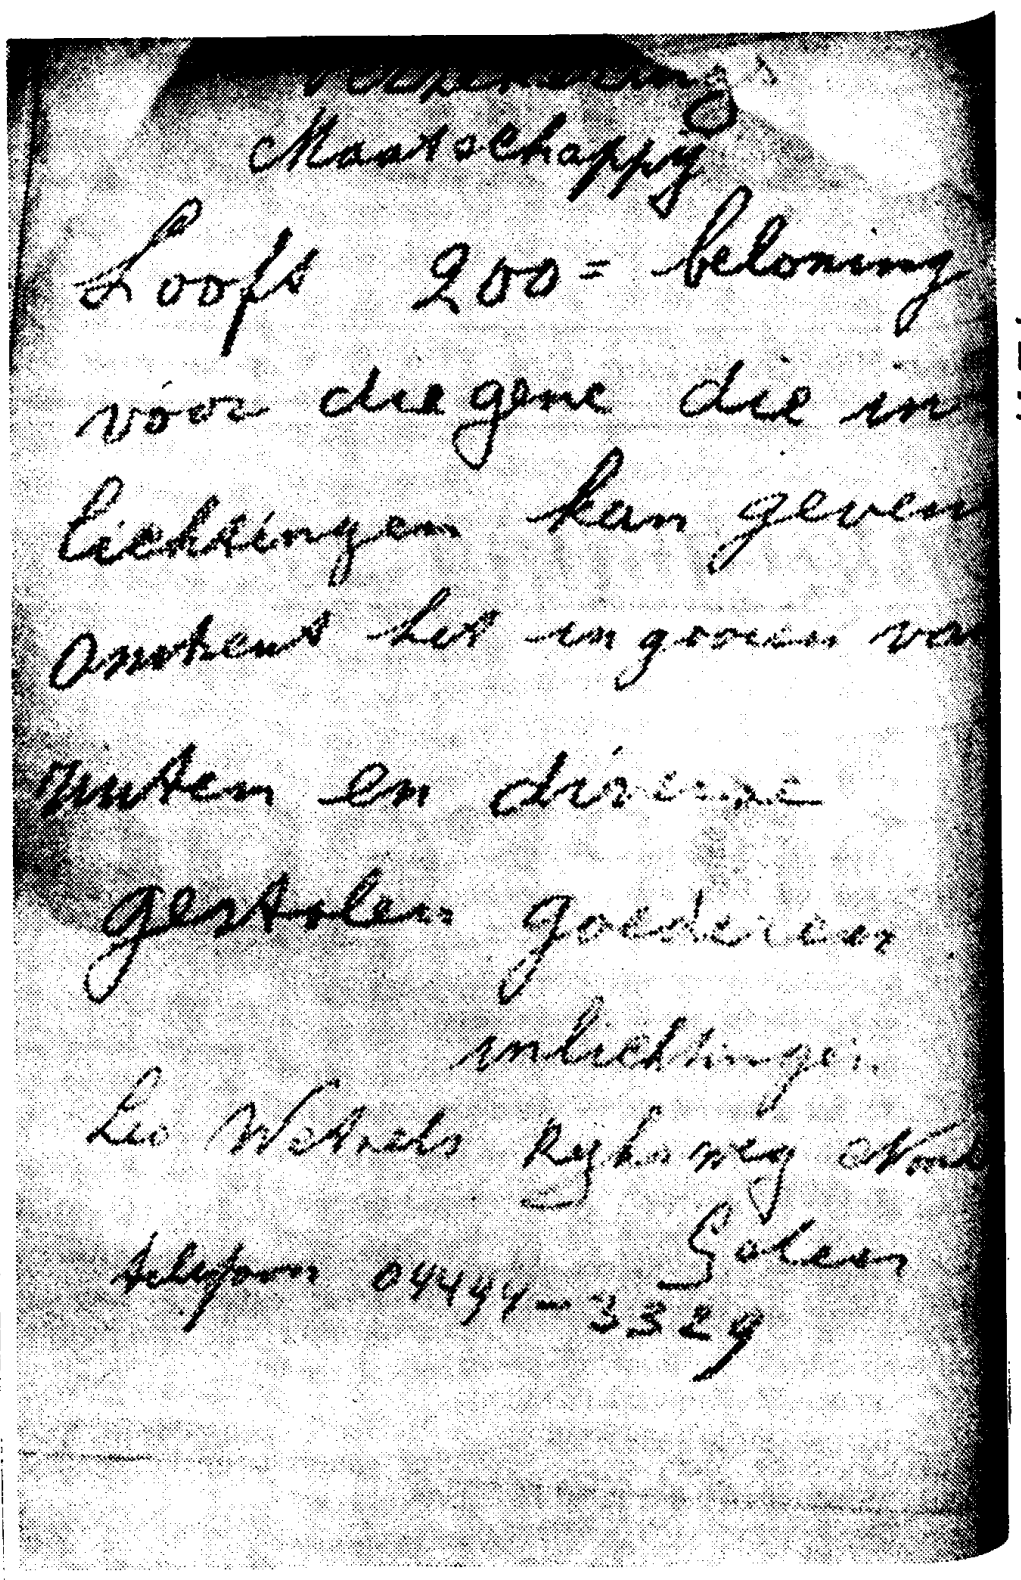 Verzekerings
Maatschappy
Looft 200= beloning
voor diegene die in
lichtingen kan geven
omtrent het ingooien va
ruiten en diverse
gestolen goederen
inlichtingen
Leo Wetzels Ryksweg Noord
Geleen
telefoon 04494-3329